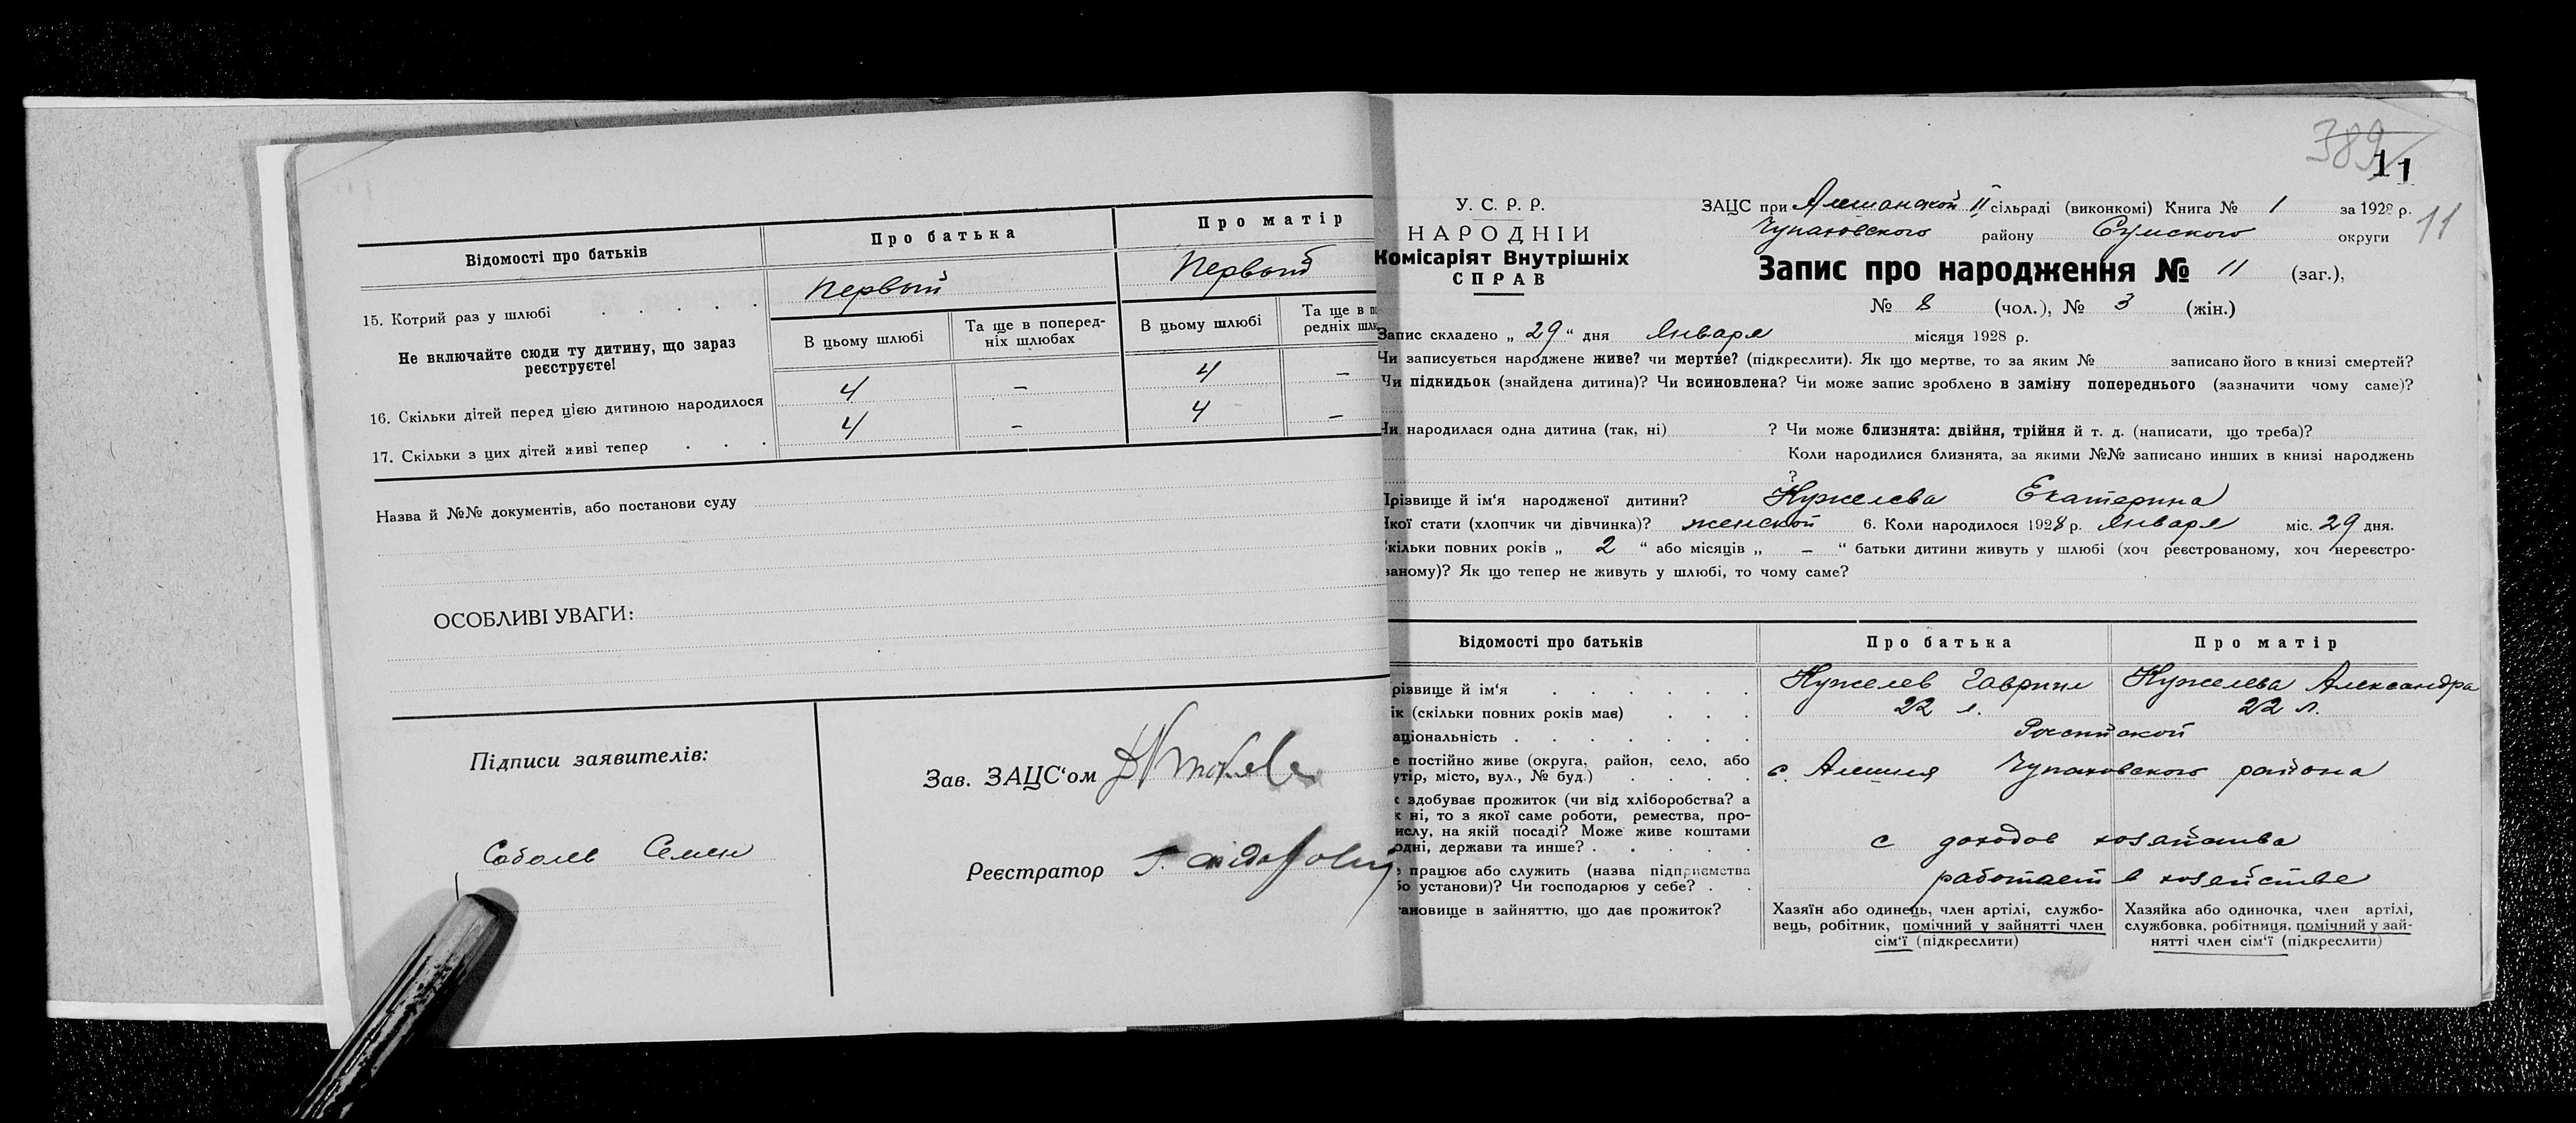 Відомості про батьків
Про батька
Про матір
15. Котрий раз у шлюбі . . . . .
Первый
Первый
Не включайте сюди ту дитину, що зараз реєструєте!
В цьому шлюбі
Та ще в поперед-
ніх шлюбах
В цьому шлюбі
Та ще в по
редніх шлю
16. Скільки дітей перед цією дитиною народилося
4 – 4 –
17. Скільки з цих дітей живі тепер . . .
4 – 4 –
Назва й №№ документів, або постанови суду
ОСОБЛИВІ УВАГИ:
Підписи заявителів:
Соболев Семен
Зав. ЗАЦС‘ом
Реєстратор
389
11
11
У. С. Р. Р.
НАРОДНІЙ
Комісаріят Внутрішніх
СПРАВ
ЗАЦС при Алешанской II сільраді (виконкомі) Книга № 1 за 1928 р.
Чупаховского району Сумского округи
Запис про народження № 11 (заг.),
№ 8 (чол.), № 3 (жін.)
Запис складено „ 29 “ дня Января місяця 1928 р.
Чи записується народжене живе? чи мертве? (підкреслити). Як що мертве, то за яким № записано його в книзі смертей?
Чи підкидьок (знайдена дитина)? Чи всиновлена? Чи може запис зроблено в заміну попереднього (зазначити чому саме)?
Чи народилася одна дитина (так, ні) ? Чи може близнята: двійня, трійня й т. д. (написати, що треба)?
Коли народилися близнята, за якими №№ записано инших в книзі народжень
?
Прізвище й ім‘я народженої дитини? Кужелева Екатерина
Якої стати (хлопчик чи дівчинка)? женской 6. Коли народилося 1928 р. Января міс. 29 дня.
кільки повних років „ 2 “ або місяців „ – “ батьки дитини живуть у шлюбі (хоч реєстрованому, хоч нереєстро-
ваному)? Як що тепер не живуть у шлюбі, то чому саме?
Відомості про батьків
Про батька
Про матір
різвище й ім‘я . . . . . .
Кужелев Гаврил
Кужелева Александра
ік (скільки повних років має) . . .
22 л.
22 л.
аціональність . . . . . . .
Российской
е постійно живе (округа, район, село, або
утір, місто, вул., № буд.) . . . .
с. Алешня Чупаховского района
к здобуває прожиток (чи від хліборобства? а
к ні, то з якої саме роботи, ремества, про-
ислу, на якій посаді? Може живе коштами
одні, держави та инше? . . . . .
с доходов хозяйства
е працює або служить (назва підприємства
бо установи)? Чи господарює у себе? . .
работает в хозяйстве
тановище в зайняттю, що дає прожиток?
Хазяїн або одинець, член артілі, службо-
вець, робітник, помічний у зайнятті член
сім‘ї (підкреслити)
Хазяйка або одиночка, член артілі,
службовка, робітниця, помічний у зай-
нятті член сім‘ї (підкреслити)